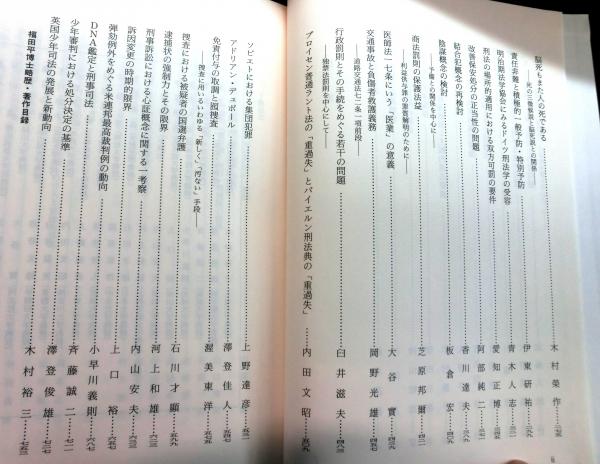 脳死もまた人の死である……木村榮作…
――死の三徴候説と脳死説との関係――
責任非難と積極的一般予防・特別予防……伊東研祐…
明治期法学協会にみるドイツ刑法学の受容……青木人志…
刑法の場所的適用における双方可罰の要件……愛知正博…
改善保安処分の正当性の問題……阿部純二…
結合犯概念の再検討……香川達夫…
陰謀概念の検討……板倉宏…
――予備との関係を中心に――
商法罰則の保護法益……芝原邦爾…
――利益供与罪の罪質解明のために――
医師法一七条にいう「医業」の意義……大谷實…
交通事故と負傷者救護義務……岡野光雄…四五七
――道路交通法七二条一項前段――
行政罰則とその手続をめぐる若干の問題……臼井滋夫…四八三
――独禁法罰則を中心にして――
プロイセン普通ラント法の「重過失」とバイエルン刑法典の「重過失」……内田文昭…五〇九
ソビエトにおける集団犯罪……上野達彦…五三一
アドリアン・デュポール……澤登佳人…五四七
免責付与の取調と囮捜査……渥美東洋…五七五
――捜査に用いるいわゆる「新しく」、「汚ない」手段――
捜査における被疑者の国選弁護……石川才顯…五九九
逮捕状の強制力とその限界……河上和雄…
刑事訴訟における心証概念に関する一考察……内山安夫…六三三
訴因変更の時期的限界……上口裕…
弾劾例外をめぐる米連邦最高裁判例の動向……小早川義則…六八七
DNA鑑定と刑事司法……斉藤誠二…七二一
少年審判における処分決定の基準……澤登俊雄…
英国少年司法の発展と新動向……木村裕三…七五三
福田平博士略歴・著作目録